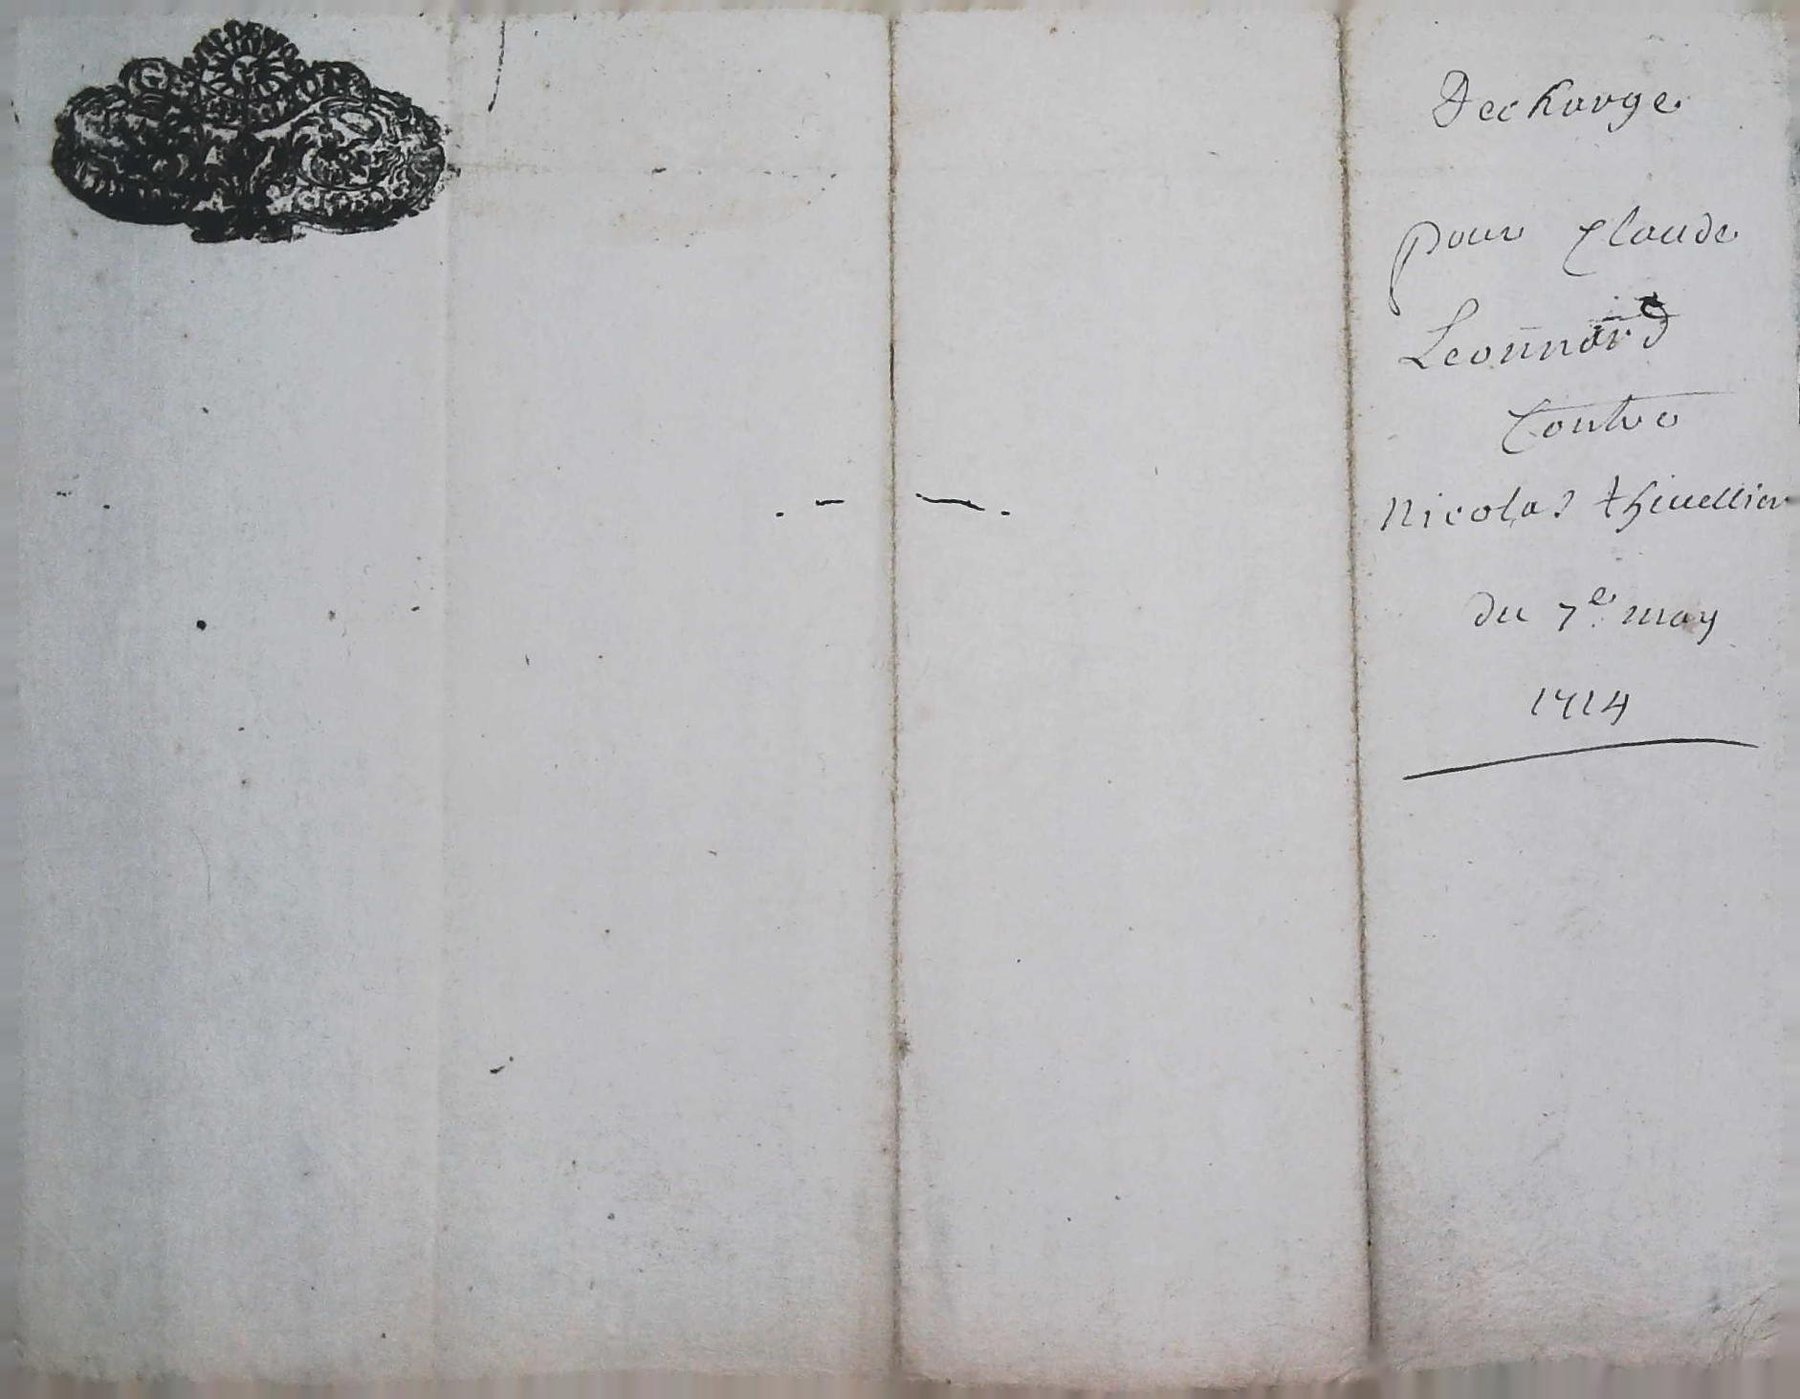 Decharge
pour Claude
Leonnard
Contre
Nicolas thiuellier
du 7e may
1714